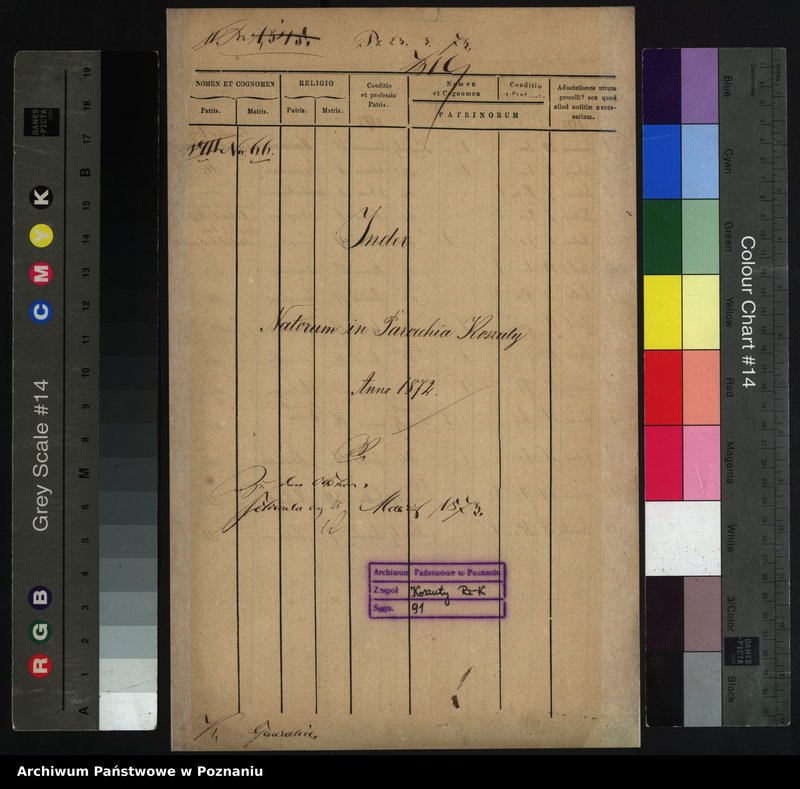 NOMEN ET COGNOMEN
RELIGIO
Conditio
et professio
Patris.
Nomen
et Cognomen
Conditio
PATRINORUM
Adnotationes utrum
gemelli? seu quod
aliud notitiu neces-
sarium.
Patris.
Matris.
Patris.
Matris.
VIII No. 66.
Index
Natorum in Parochia Koszuty
Anno 1872.
Zu den Akten.
Schroda 28 Maerz 1873.
Archiwum Państwowe w Poznaniu
Zespół Koszuty Rz-K
Sygn. 91
Grey Scale #14
A 1 2 3 4 5 M 8 9 10 11 12 13 14 15 B 17 18 19
R G B C M Y K
DANES
PICTA
.COM
Colour Chart #14
Blue
Cyan
Green
Yellow
Red
Magenta
White
3/Color
Black
Centimetres
Inches
DANES
PICTA
Archiwum Państwowe w Poznaniu